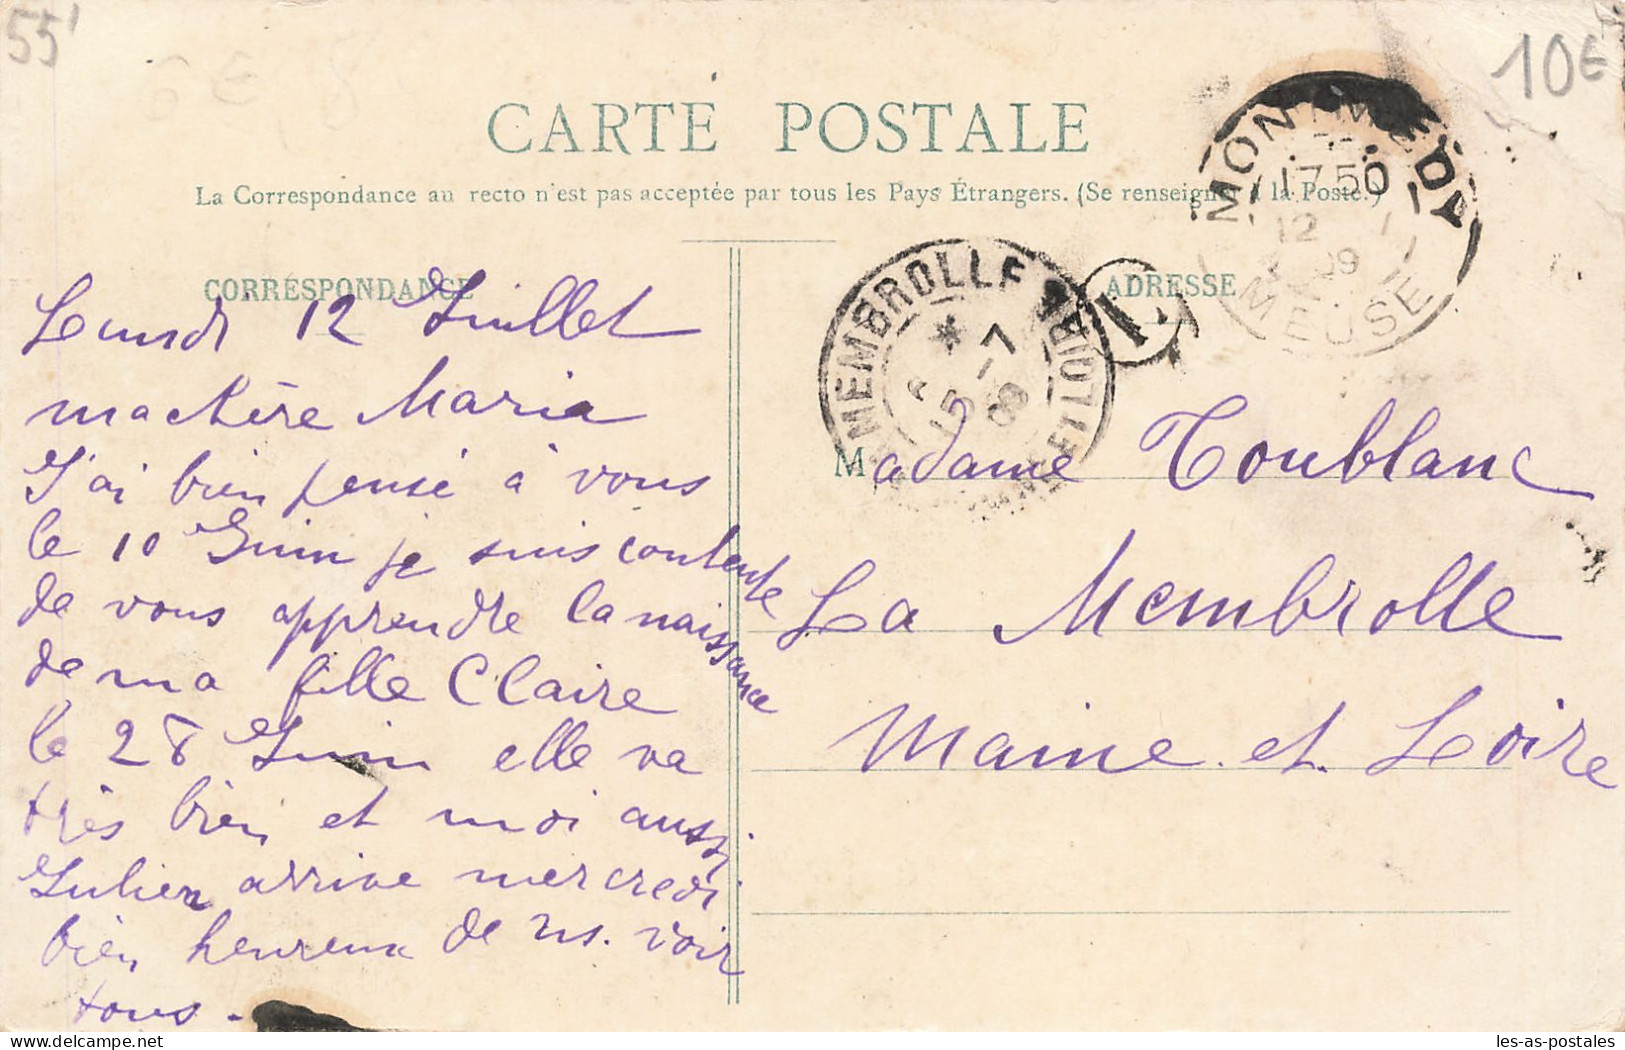 55
10€
CARTE POSTALE
La Correspondance au recto n'est pas acceptée par tous les Pays Étrangers. (Se renseigner à la Poste.)
CORRESPONDANCE
ADRESSE
MONTMEDY
17 50
12
09
MEUSE
MEMBROLLE
15 -7
09
L
Lundi 12 Juillet
ma chère Maria
J'ai bien pensé à vous
le 10 Juin je suis contente
de vous apprendre la naissance
de ma fille Claire
le 28 Juin elle va
très bien et moi aussi
Julien arrive mercredi
bien heureux de ns. voir
tous.
Madame Toublanc
La Membrolle
Maine et Loire
les-as-postales
delcampe.net